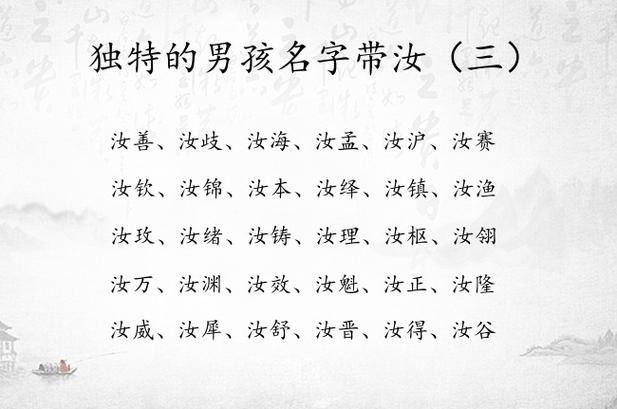 独特的男孩名字带汝（三）
汝善、汝歧、汝海、汝孟、汝沪、汝赛
汝钦、汝锦、汝本、汝绎、汝镇、汝渔
汝玫、汝绪、汝铸、汝理、汝枢、汝翎
汝万、汝渊、汝效、汝魁、汝正、汝隆
汝威、汝犀、汝舒、汝晋、汝得、汝谷